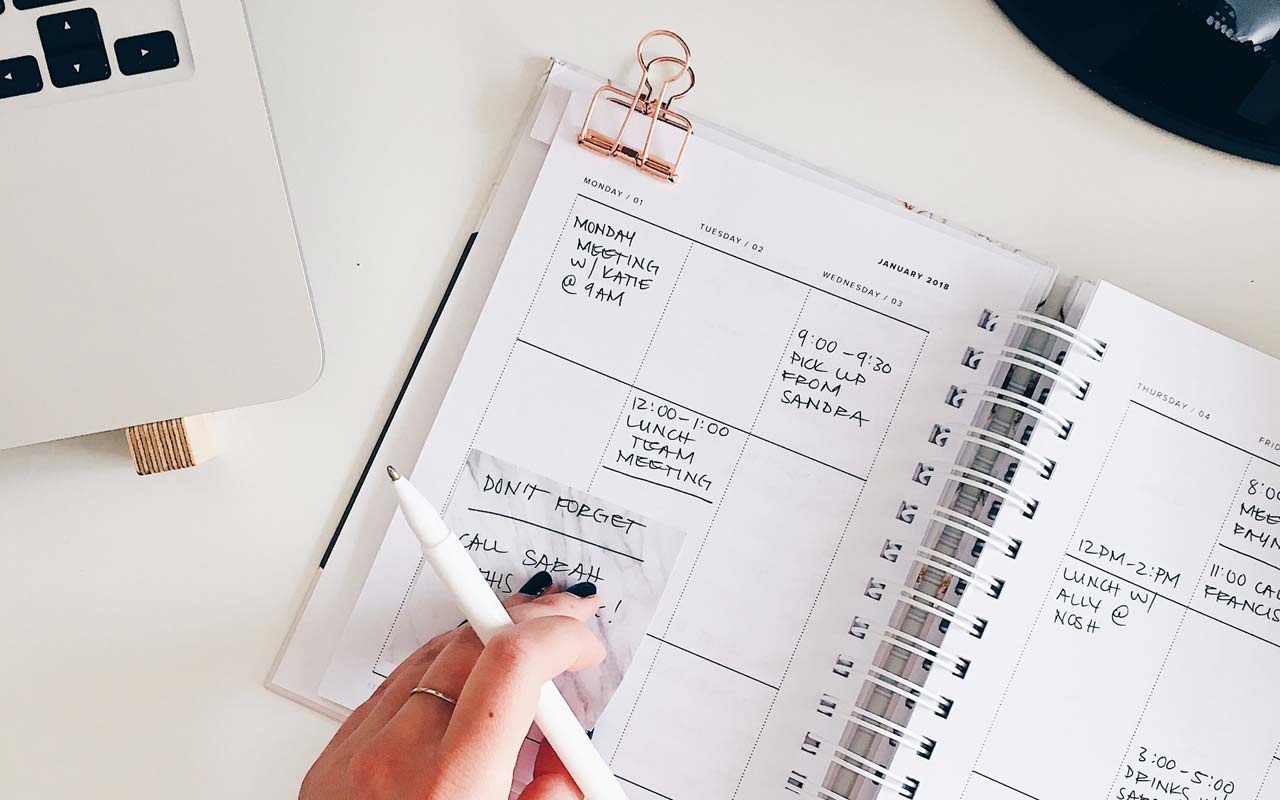 MONDAY / 01
MONDAY
MEETING
W/ KATIE
@ 9AM
TUESDAY / 02
12:00-1:00
LUNCH
TEAM
MEETING
JANUARY 2018
WEDNESDAY / 03
9:00-9:30
PICK UP
FROM
SANDRA
DON'T FORGET
CALL SARAH
THURSDAY / 04
12PM-2:PM
LUNCH W/
ALLY @
NOSH
11:00
3:00-5:00
DRINKS